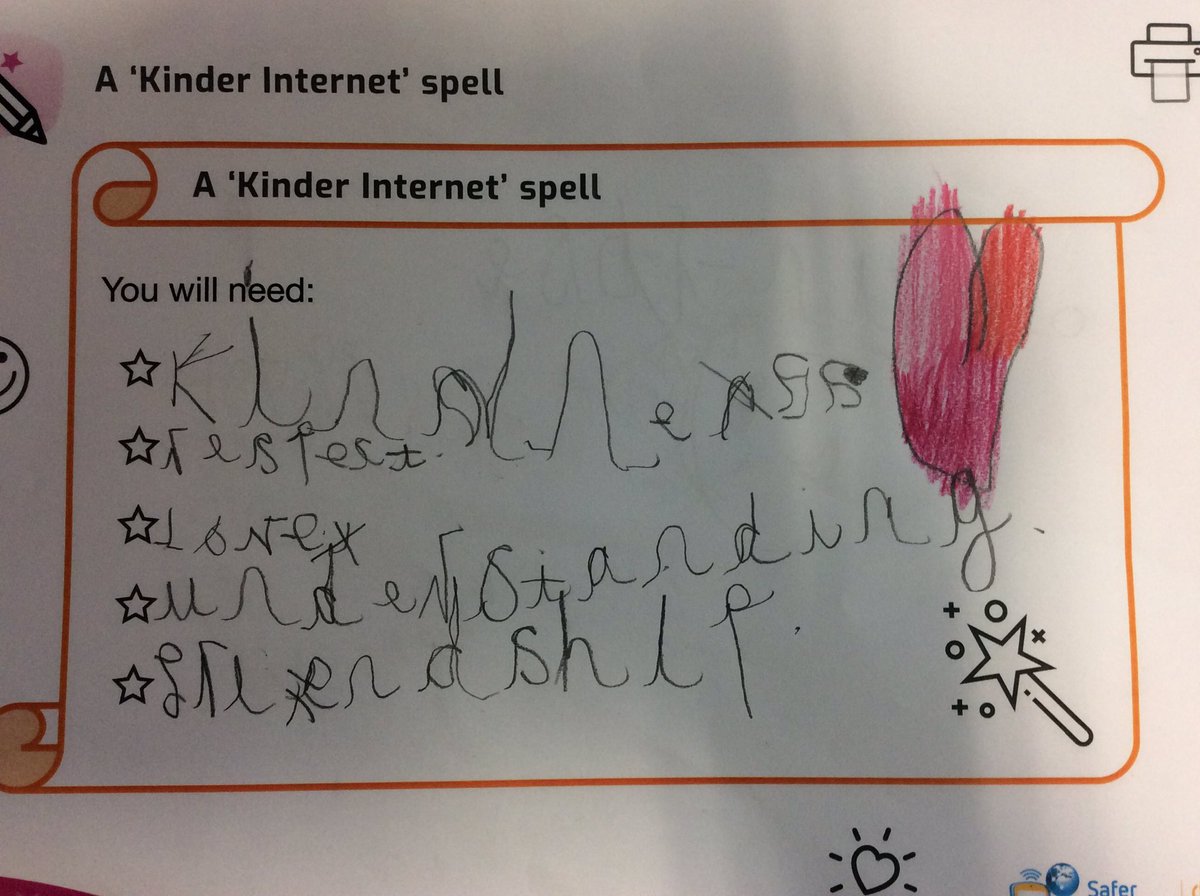 A 'Kinder Internet' spell
A 'Kinder Internet' spell
You will need:
Kindness
respect.
Love
understanding.
friendship.
Safer